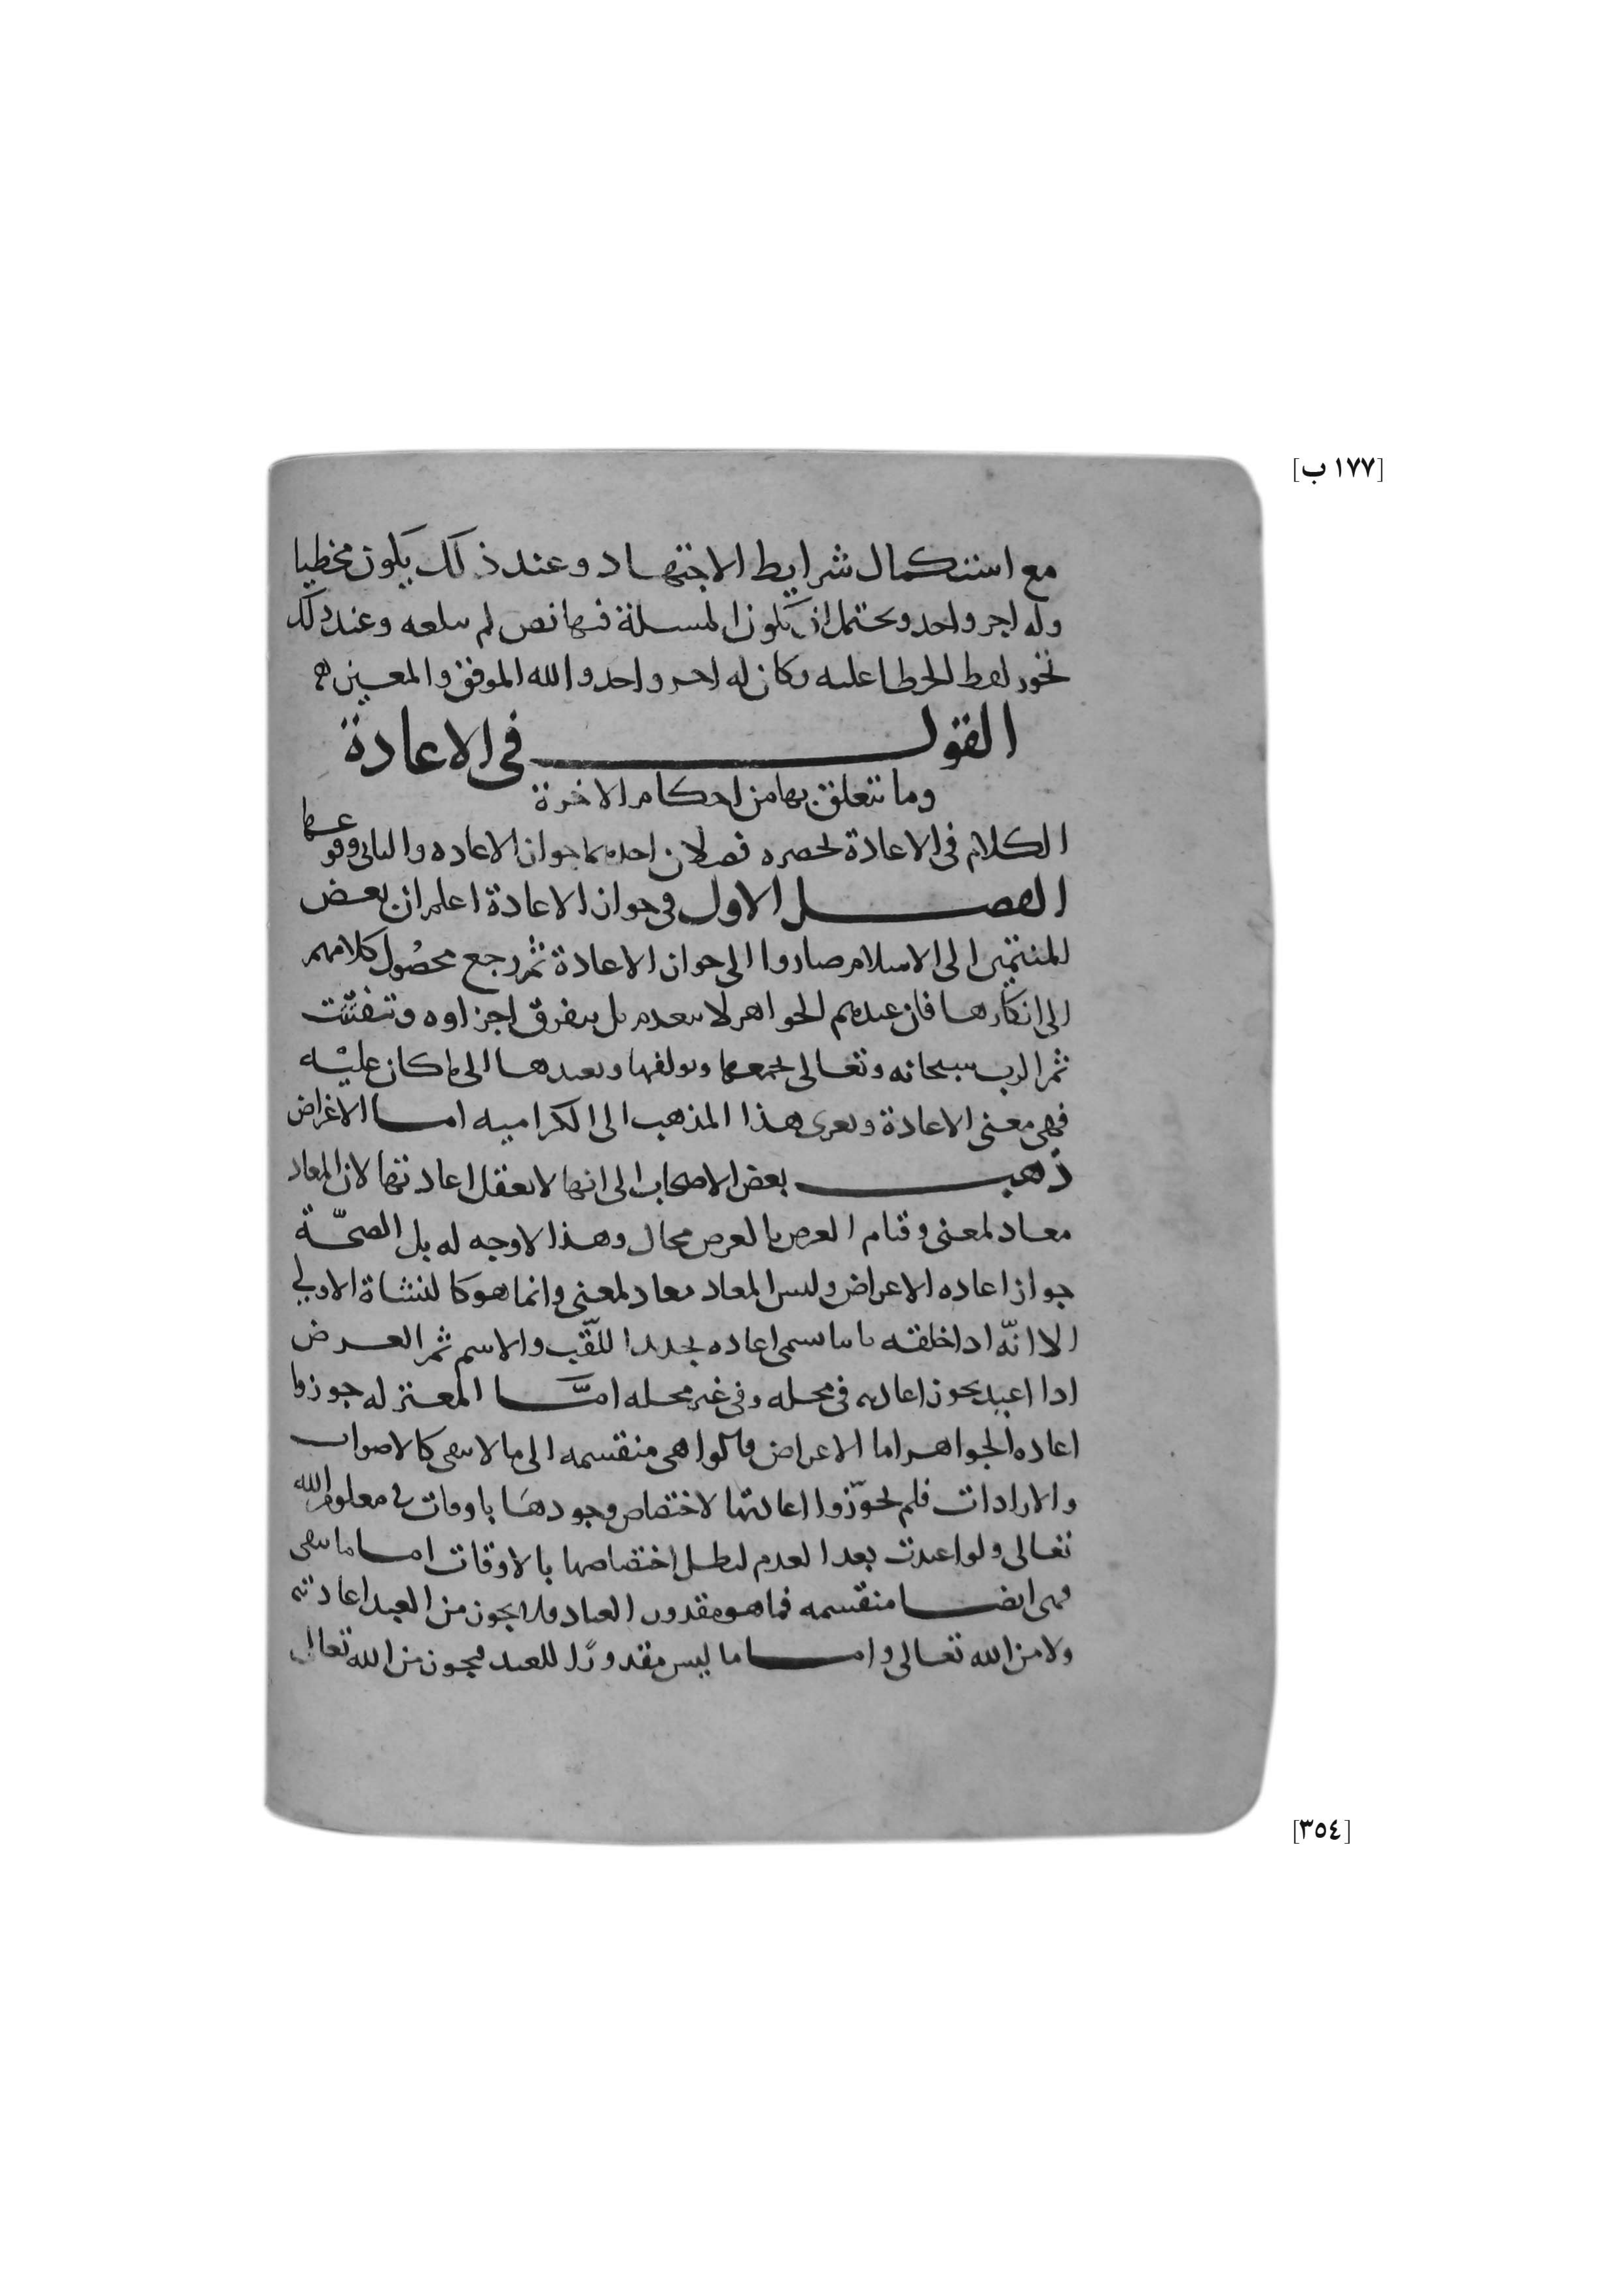 [١٧٧ ب]
مع استكمال شرايط الاجتهاد وعند ذلك يكون مخطيا
وله اجر واحد ويحتمل ان يكون المسلة فيها نص لم يبلغه وعند ذلك
يجوز لفظ الخطا عليه وكان له اجر واحد والله الموفق والمعين
القول في الاعادة
وما يتعلق بها من احكام الاخرة
الكلام في الاعادة يحصره فصلان احدهما جواز الاعاده والثاني وقوعها
الفصل الاول في جواز الاعادة اعلم ان بعض
المنتمين الى الاسلام صاروا الى جواز الاعادة ثم رجع محصول كلامهم
الى انكارها فان عندهم الجواهر لا ينعدم بل يتفرق اجزاوه وتتفتت
ثم الرب سبحانه وتعالى يجمعها ويولفها ويعيدها الى ما كان عليه
فهي معنى الاعادة ويعزى هذا المذهب الى الكراميه اما الاعراض
ذهب بعض الاصحاب الى انها لا يعقل اعادتها لان المعاد
معاد لمعنى وقيام العرض بالعرض محال وهذا لا وجه له بل الصحة
جواز اعاده الاعراض وليس المعاد معاد لمعنى وانما هو كالنشاة الاولى
الا انه اذا خلقه ثانيا سمى اعاده تجديدا للقب والاسم ثم العرض
اذا اعيد يجوز اعادته في محله وفي غير محله اما المعتزله جوزوا
اعاده الجواهر اما الاعراض قالوا هي منقسمه الى ما لا يبقى كالاصوات
والارادات فلم يجوزوا اعادتها لاختصاص وجودها باوقات في معلوم الله
تعالى ولو اعيدت بعد العدم لبطل اختصاصها بالاوقات اما ما يبقى
فهى ايضا منقسمه فما هو مقدور العباد فلا يجوز من العبد اعادته
ولا من الله تعالى واما ما ليس مقدورا للعبد فيجوز من الله تعالى
[٣٥٤]